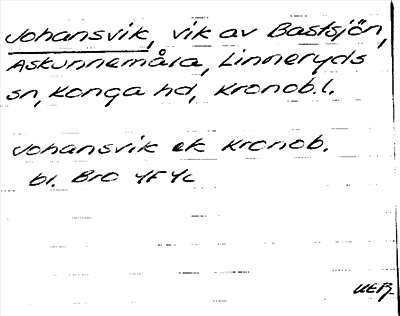 Johansvik, vik av Bastsjön,
Askunnemåla, Linneryds
sn, Konga hd, Kronob. l.
Johansvik ek Kronob.
bl. Bro 4F4c